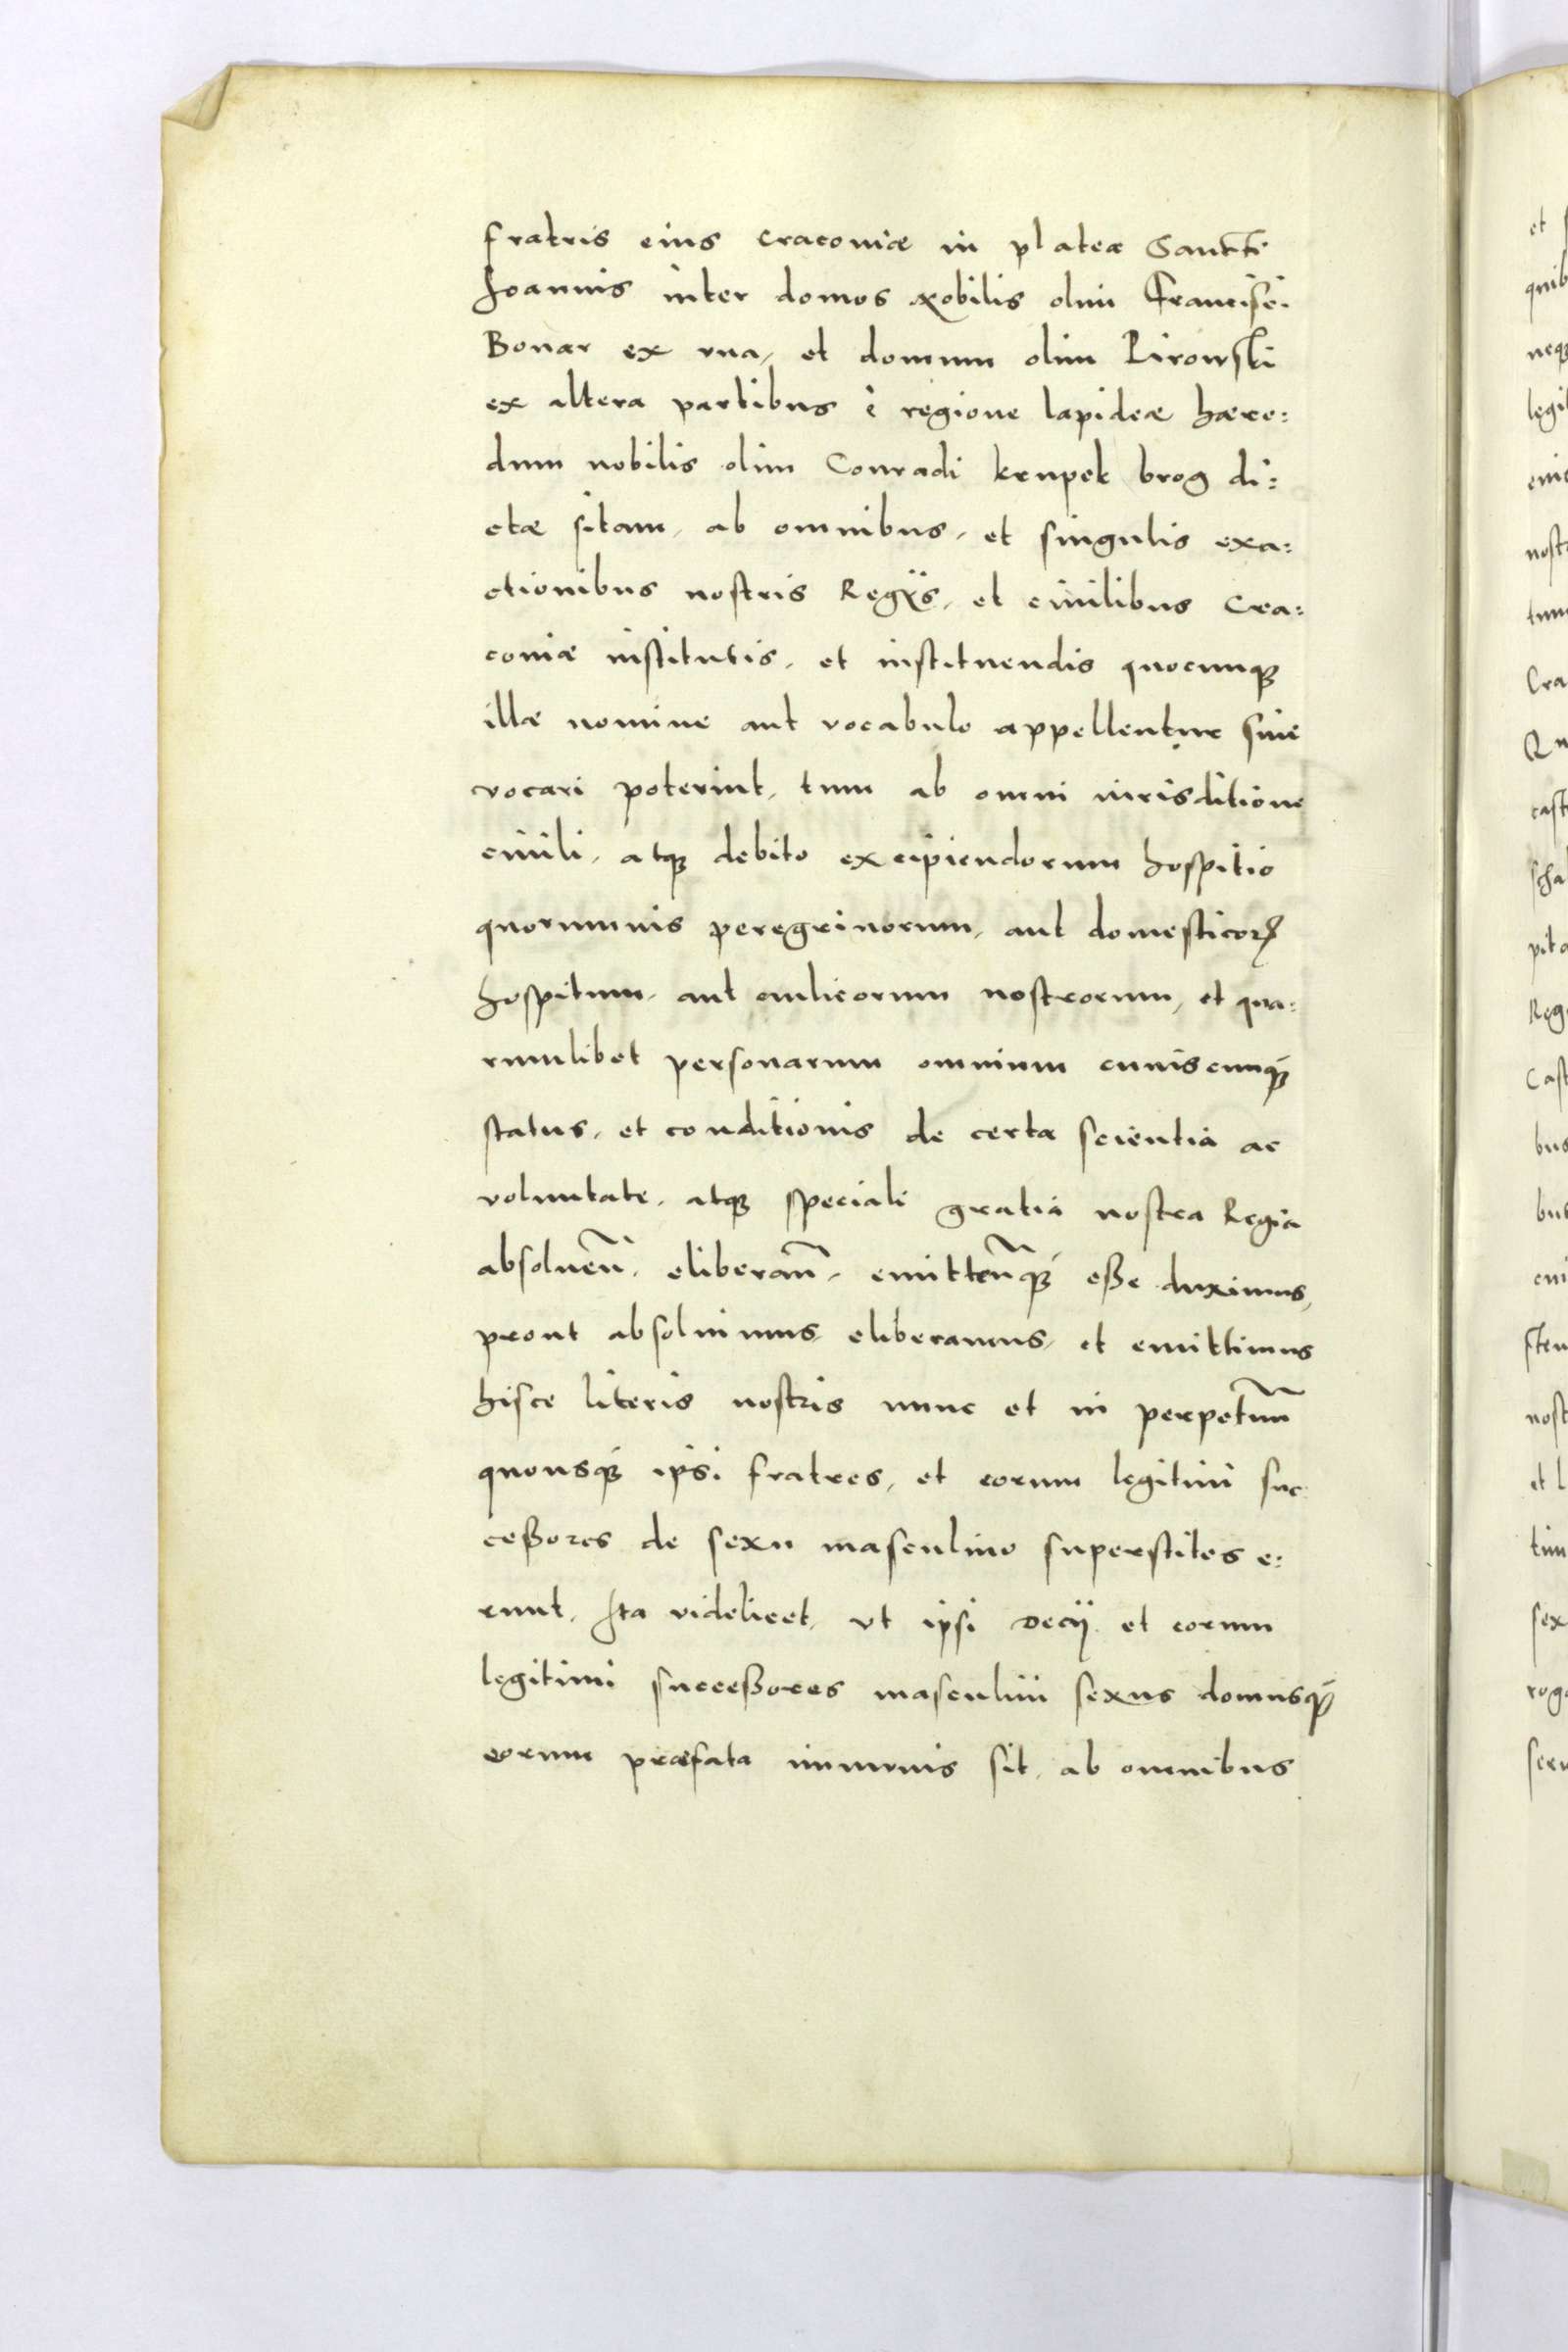 fratris eius Cracoviæ in platea Sancti
Joannis inter domos nobilis olim Francisci
Bonar ex vna, et domum olim Pirowski
ex altera partibus è regione lapideæ hære:
dum nobilis olim Conradi krupek brog di:
ctæ sitam, ab omnibus, et singulis exa:
ctionibus nostris Regijs, et ciuilibus Cra:
couiæ institutis, et instituendis quocunque
illæ nomine aut vocabulo appellentur siue
vocari poterint, tum ab omni iurisditione
ciuili, atque debito excipiendorum hospitio
quorumuis peregrinorum, aut domesticorꝝ
hospitum, aut aulicorum nostrorum, et qua:
rumlibet personarum omnium cuiuscunque
status, et conditionis de certa scientia ac
voluntate, atque speciali gratia nostra Regia
absoluen̄, eliberan̄, emitten̄que eße duximus,
prout absoluimus, eliberamus, et emittimus
hisce literis nostris nunc et in perpetuum̄
quousque ipsi fratres, et eorum legitimi suc:
ceßores de sexu masculino superstites e:
runt, Ita videlicet, vt ipsi Decij et eorum
legitimi succeßores masculini sexus domusque
eorum præfata immunis sit, ab omnibus
et
quib
neq
legit
nost
tum
Cra
cast
scha
pita
Reg
Cast
bus
bus
sten
nost
et l
tim
sex
roga
seru